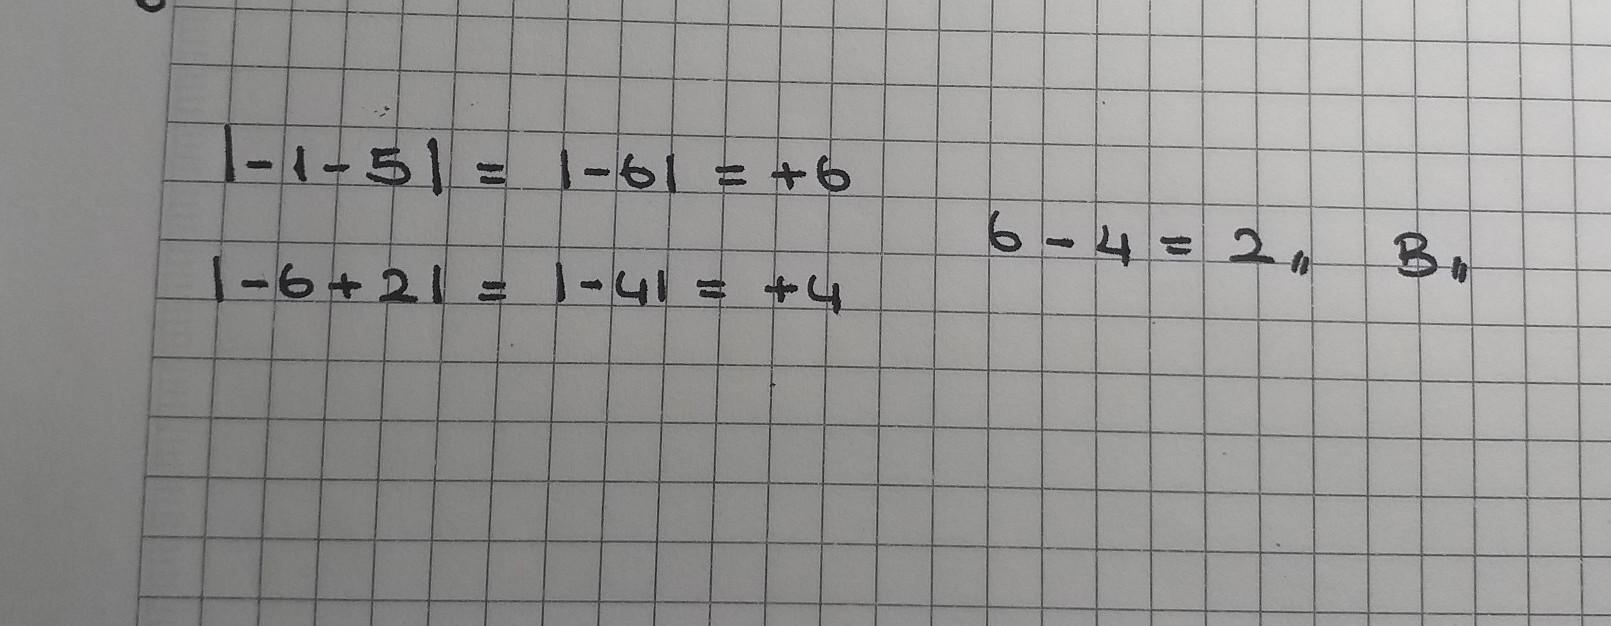 |-1-5| = |-6| = +6
6 - 4 = 2,, B,,
|-6+2| = |-4| = +4